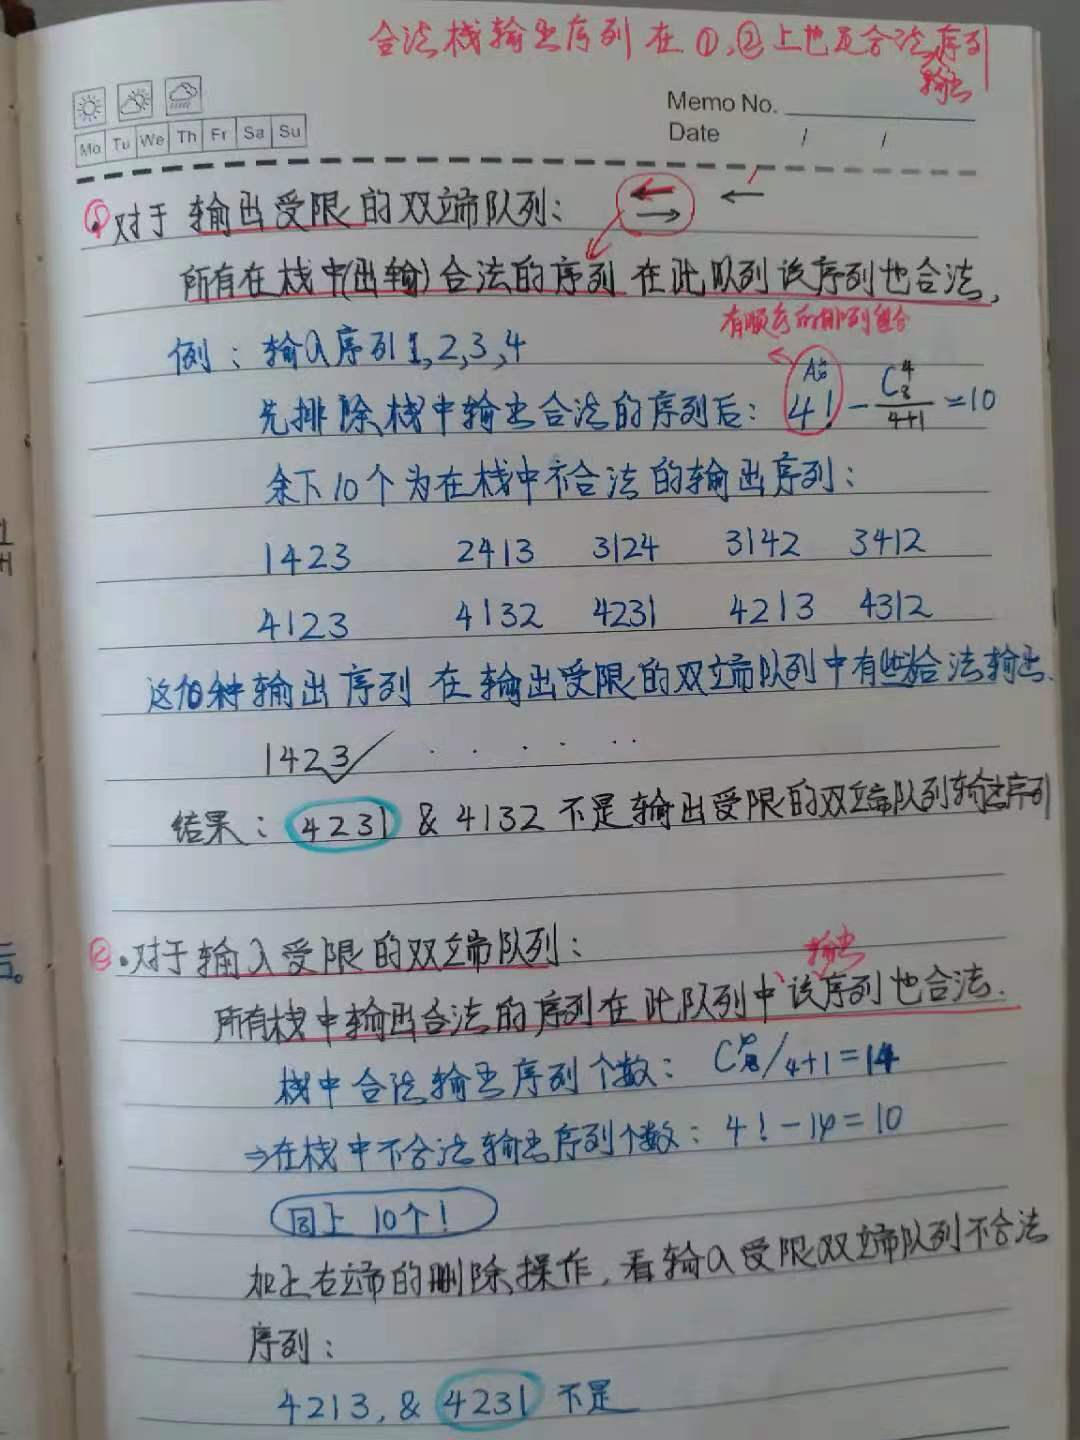 合法栈输出序列在①,②上也是合法序列
输出
Memo No.
Mo Tu We Th Fr Sa Su
Date / /
①.对于输出受限的双端队列:
所有在栈中(出输)合法的序列在此队列该序列也合法,
有顺序的排列组合
例:输入序列1,2,3,4
先排除栈中输出合法的序列后: 4! - C₈⁴/4+1 =10
余下10个为在栈中不合法的输出序列:
1423 2413 3124 3142 3412
4123 4132 4231 4213 4312
这10种输出序列在输出受限的双端队列中有些合法输出.
1423✓ · · · · · ·
结果: 4231 & 4132 不是输出受限的双端队列输出序列
②.对于输入受限的双端队列:
输出
所有栈中输出合法的序列在此队列中、该序列也合法.
栈中合法输出序列个数: C₈⁴/4+1=14
⇒在栈中不合法输出序列个数: 4!-14=10
同上 10个!
加上右端的删除操作,看输入受限双端队列不合法
序列:
4213, & 4231 不是